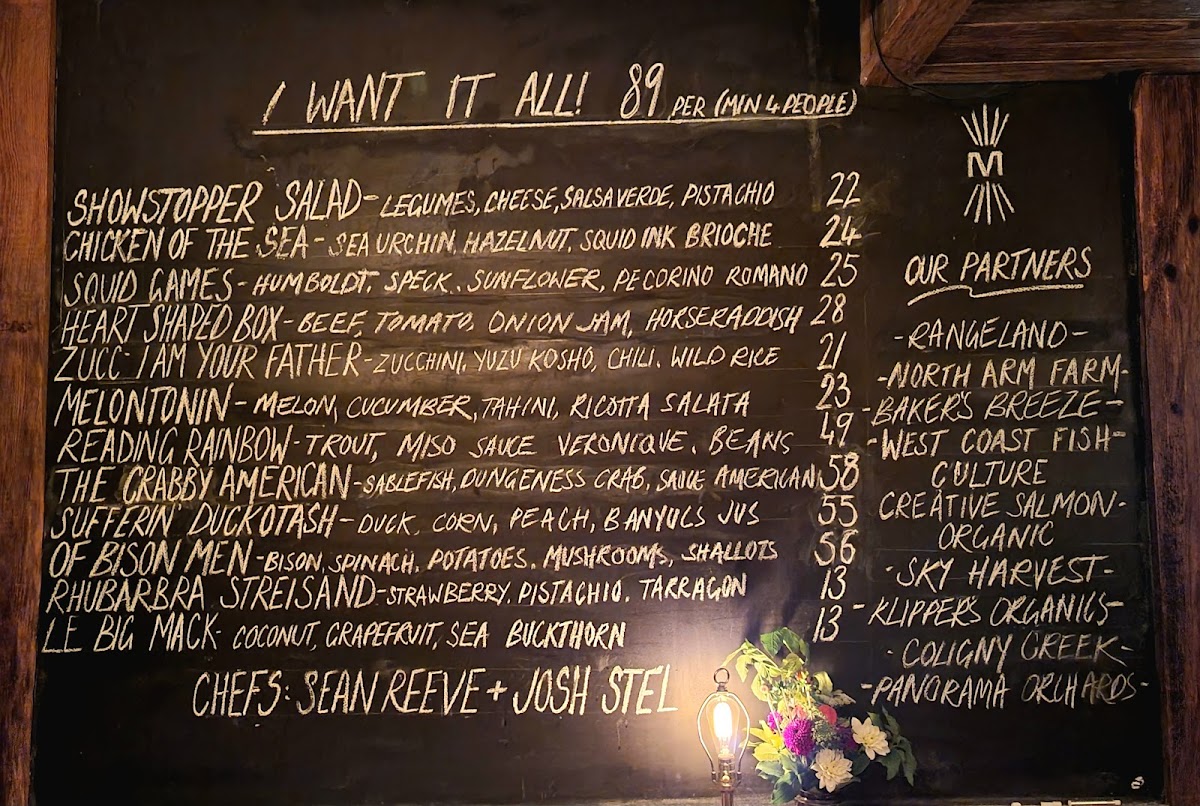 I WANT IT ALL! 89 PER (MIN 4 PEOPLE)
SHOWSTOPPER SALAD - LEGUMES, CHEESE, SALSA VERDE, PISTACHIO 22
CHICKEN OF THE SEA - SEA URCHIN, HAZELNUT, SQUID INK BRIOCHE 24
SQUID GAMES - HUMBOLDT, SPECK, SUNFLOWER, PECORINO ROMANO 25
HEART SHAPED BOX - BEEF, TOMATO, ONION JAM, HORSERADDISH 28
ZUCC- I AM YOUR FATHER - ZUCCHINI, YUZU KOSHO, CHILI, WILD RICE 21
MELONTONIN - MELON, CUCUMBER, TAHINI, RICOTTA SALATA 23
READING RAINBOW - TROUT, MISO SAUCE VERONIQUE, BEANS 49
THE CRABBY AMERICAN - SABLEFISH, DUNGENESS CRAB, SAUCE AMERICAN 58
SUFFERIN' DUCKOTASH - DUCK, CORN, PEACH, BANYULS JUS 55
OF BISON MEN - BISON, SPINACH, POTATOES, MUSHROOMS, SHALLOTS 56
RHUBARBRA STREISAND - STRAWBERRY, PISTACHIO, TARRAGON 13
LE BIG MACK - COCONUT, GRAPEFRUIT, SEA BUCKTHORN 13
CHEFS: SEAN REEVE + JOSH STEL
M
OUR PARTNERS
- RANGELAND -
- NORTH ARM FARM -
- BAKER'S BREEZE -
- WEST COAST FISH -
CULTURE
CREATIVE SALMON -
ORGANIC
- SKY HARVEST -
- KLIPPER'S ORGANICS -
- COLIGNY CREEK -
- PANORAMA ORCHARDS -